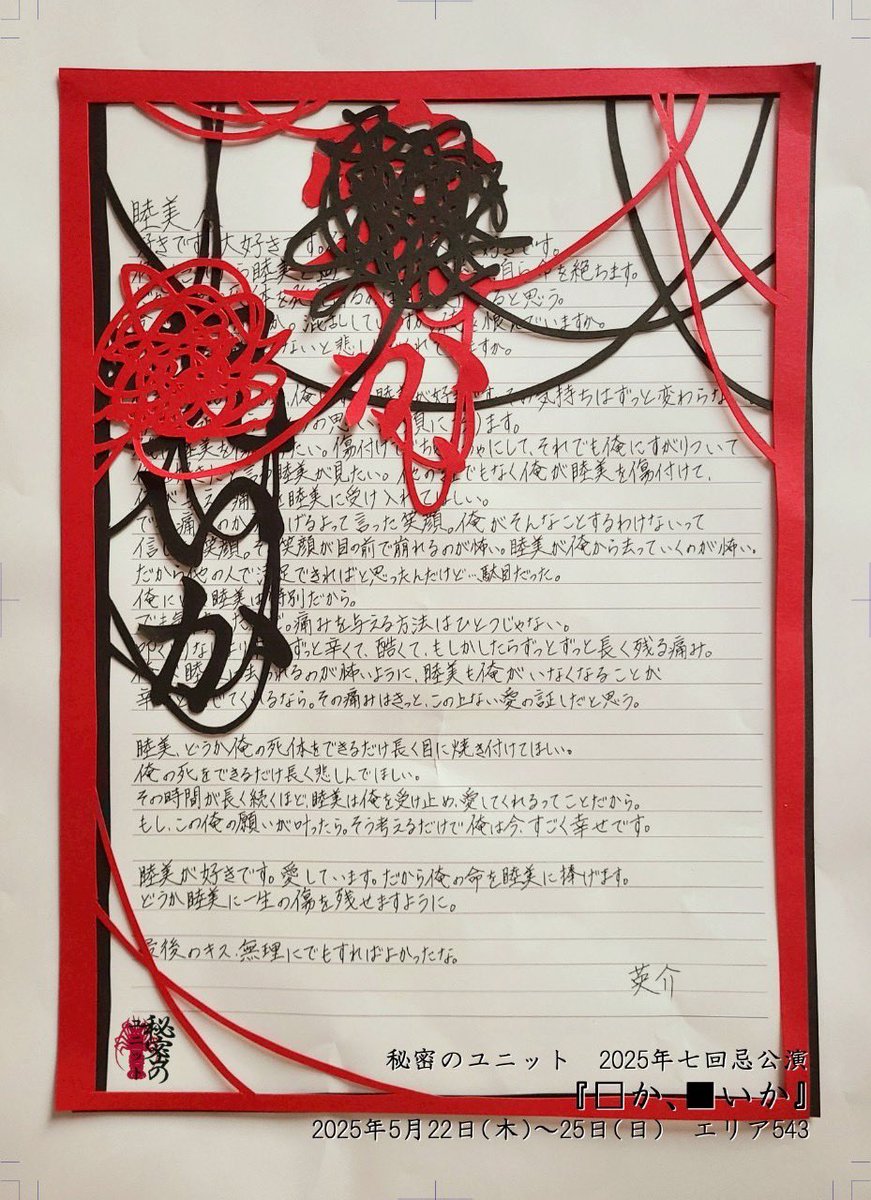 睦美へ
好きです。大好きです。
睦美
自ら命を絶ちます。
と思う。
混乱していますか。
ないと悲しくれていますか。
俺は 睦美が好きです。その気持ちはずっと変わらない
の思い
たい。傷付けてめちゃくちゃにして、それでも俺にすがりついて
睦美が見たい。他の誰でもなく俺が睦美を傷付けて、
睦美に受け入れてほしい。
げるよって言った笑顔。俺がそんなことするわけないって
笑顔。その笑顔が目の前で崩れるのが怖い。睦美が俺から去っていくのが怖い。
だから他の人で満足できればと思ったんだけど…駄目だった。
俺にとって睦美は特別だから。
でも 痛みを与える方法はひとつじゃない。
ずっと辛くて、酷くて、もしかしたらずっとずっと長く残る痛み。
れるのが怖いように、睦美も俺がいなくなることが
てくれるなら。その痛みはきっと、この上ない愛の証しだと思う。
睦美、どうか俺の死体をできるだけ長く目に焼き付けてほしい。
俺の死をできるだけ長く悲しんでほしい。
その時間が長く続くほど、睦美は俺を受け止め、愛してくれるってことだから。
もし、この俺の願いが叶ったら。そう考えるだけで俺は今、すごく幸せです。
睦美が好きです。愛しています。だから俺の命を睦美に捧げます。
どうか睦美に一生の傷を残せますように。
最後のキス、無理にでもすればよかったな。
英介
か
いか
秘密のユニット
秘密のユニット 2025年七回忌公演
『□か、■いか』
2025年5月22日(木)～25日(日) エリア543